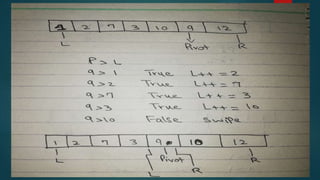 1 2 7 3 10 9 12
L Pivot R
P > L
9 > 1 True L++ = 2
9 > 2 True L++ = 7
9 > 7 True L++ = 3
9 > 3 True L++ = 10
9 > 10 False Swipe
1 2 7 3 9 10 12
L Pivot R
L R